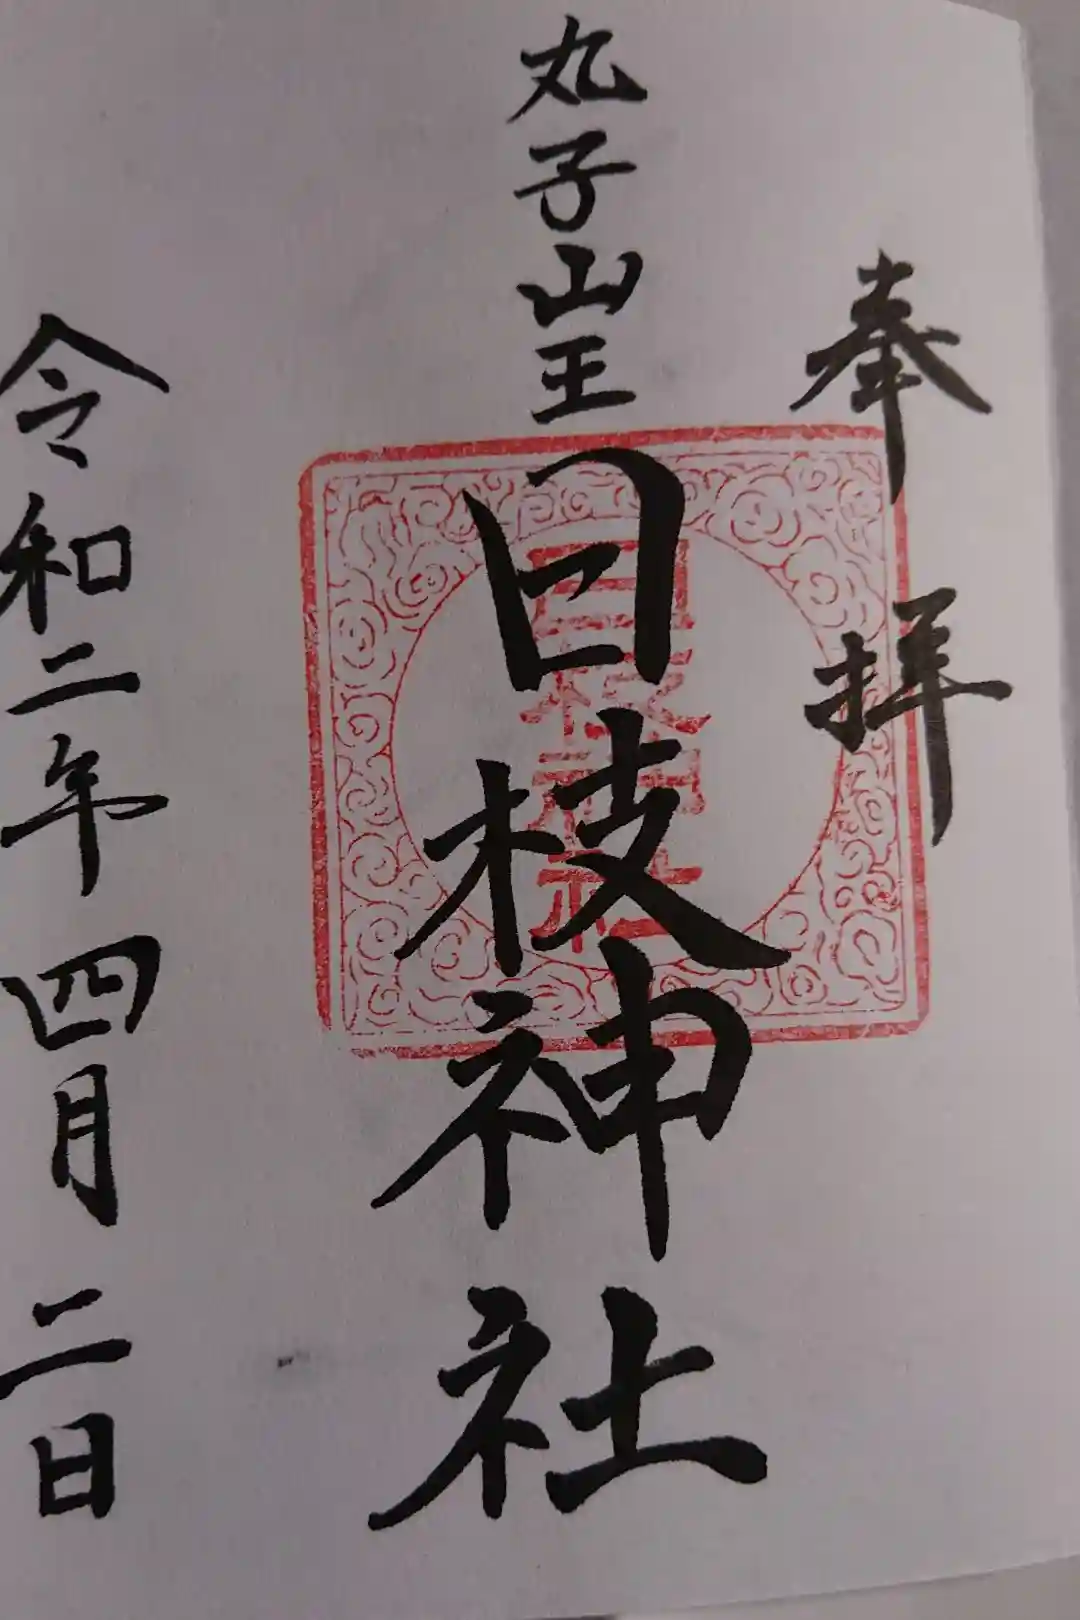 奉拝
丸子山王
日枝神社
日枝神社
令和二年四月二日